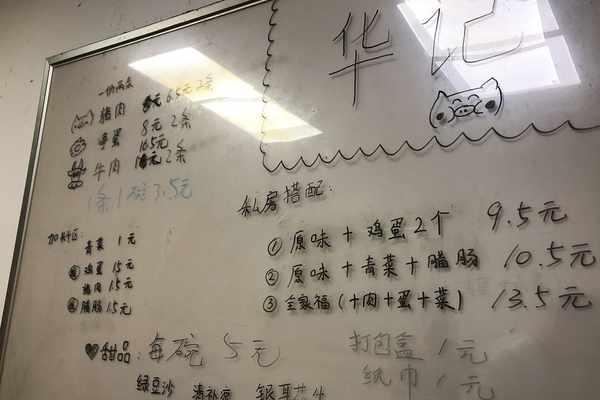 华记
一份两条
猪肉 6.5元 2条
鸡蛋 8元 2条
牛肉 2条
1条1碗3.5元
私房搭配:
① 原味+鸡蛋2个 9.5元
② 原味+青菜+腊肠 10.5元
③ 全家福(+肉+蛋+菜) 13.5元
青菜 1元
鸡蛋 1.5元
猪肉 1.5元
腊肠 1.5元
甜品: 每碗 5元
绿豆沙 清补凉 银耳
打包盒 1元
纸巾 1元